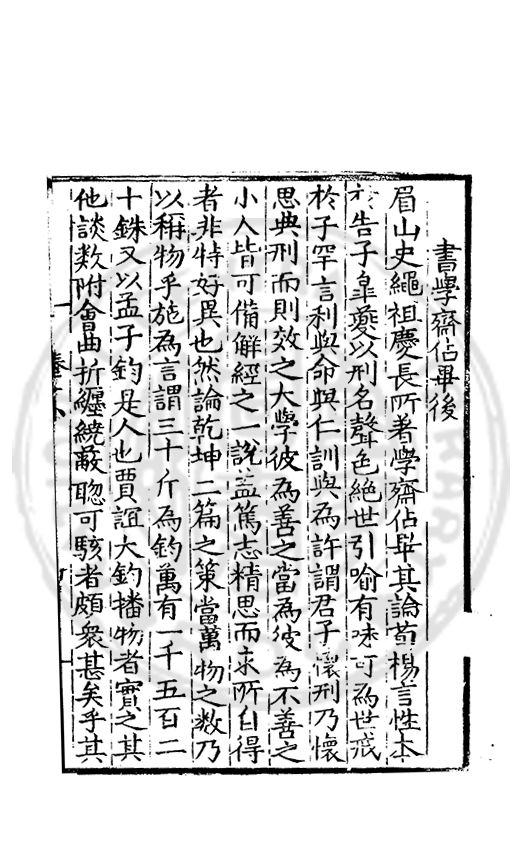 書學齋佔畢後
眉山史繩祖慶長所著學齋佔畢其論荀楊言性本
於告子臯夔以刑名聲色絕世引喻有味可為世戒
於子罕言利與命與仁訓與為許謂君子懷刑乃懷
思典刑而則效之大學彼為善之當為彼為不善之
小人皆可備觧經之一說盖篤志精思而求所自得
者非特好異也然論乾坤二篇之策當萬物之數乃
以稱物平施為言謂三十斤為鈞萬有一千五百二
十銖又以孟子鈞是人也賈誼大鈞播物者實之其
他談數附會曲折纏繞蔽聦可駭者頗衆甚矣乎其